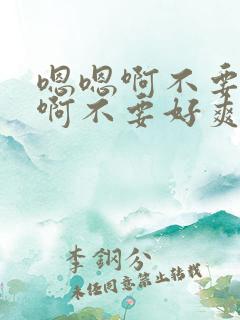 嗯嗯啊不要
啊不要好爽
李钢分
未经同意禁止转载